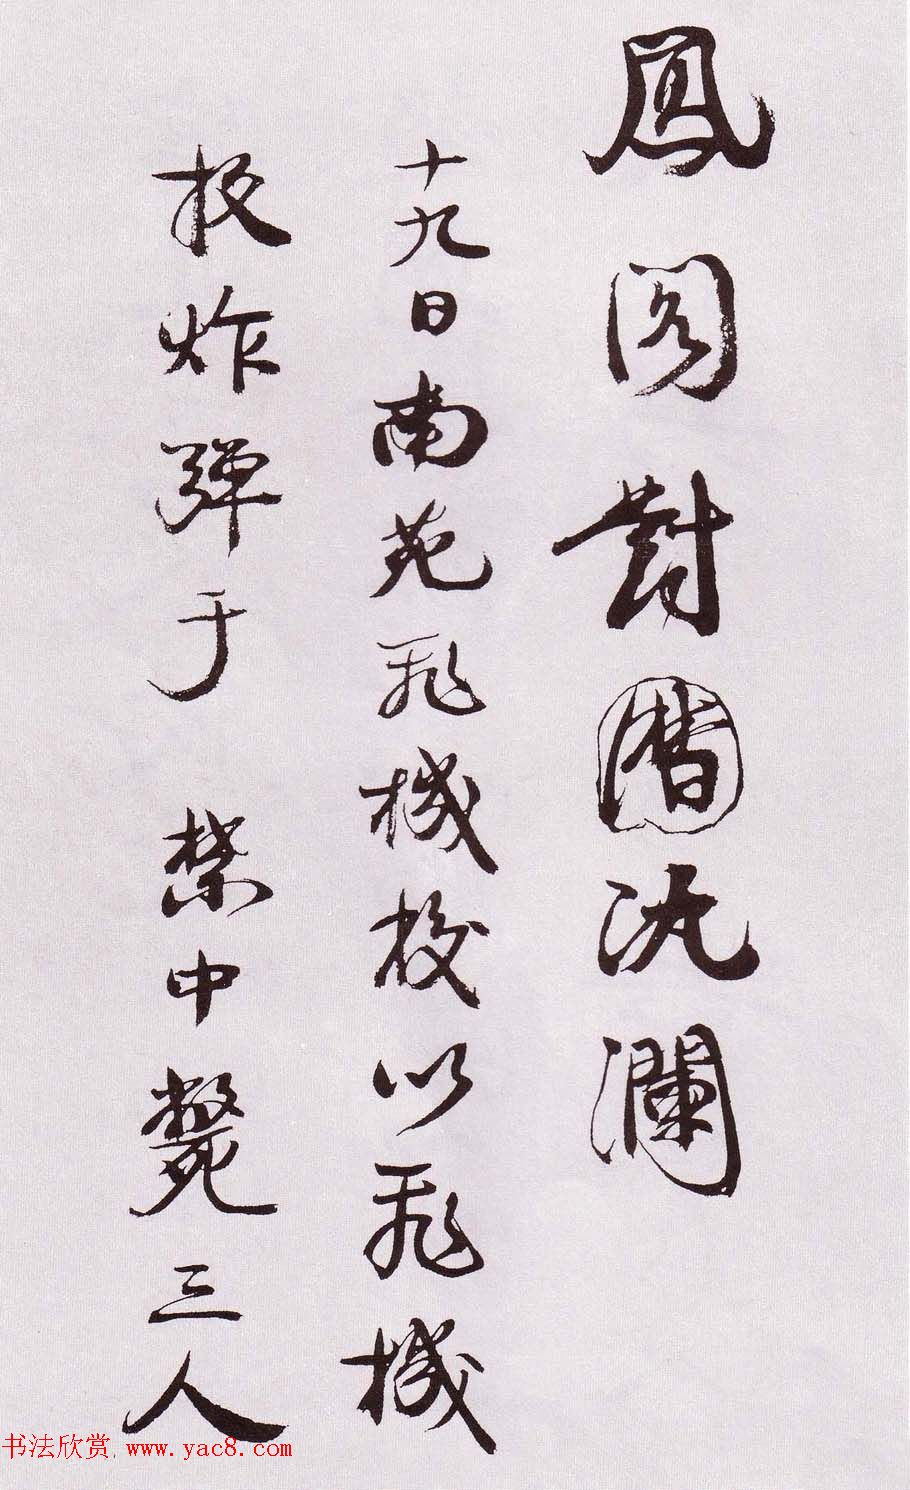 鳳閣對潛汍瀾
十九日南苑飛機校以飛機
投炸彈于 禁中斃三人
书法欣赏.www.yac8.com